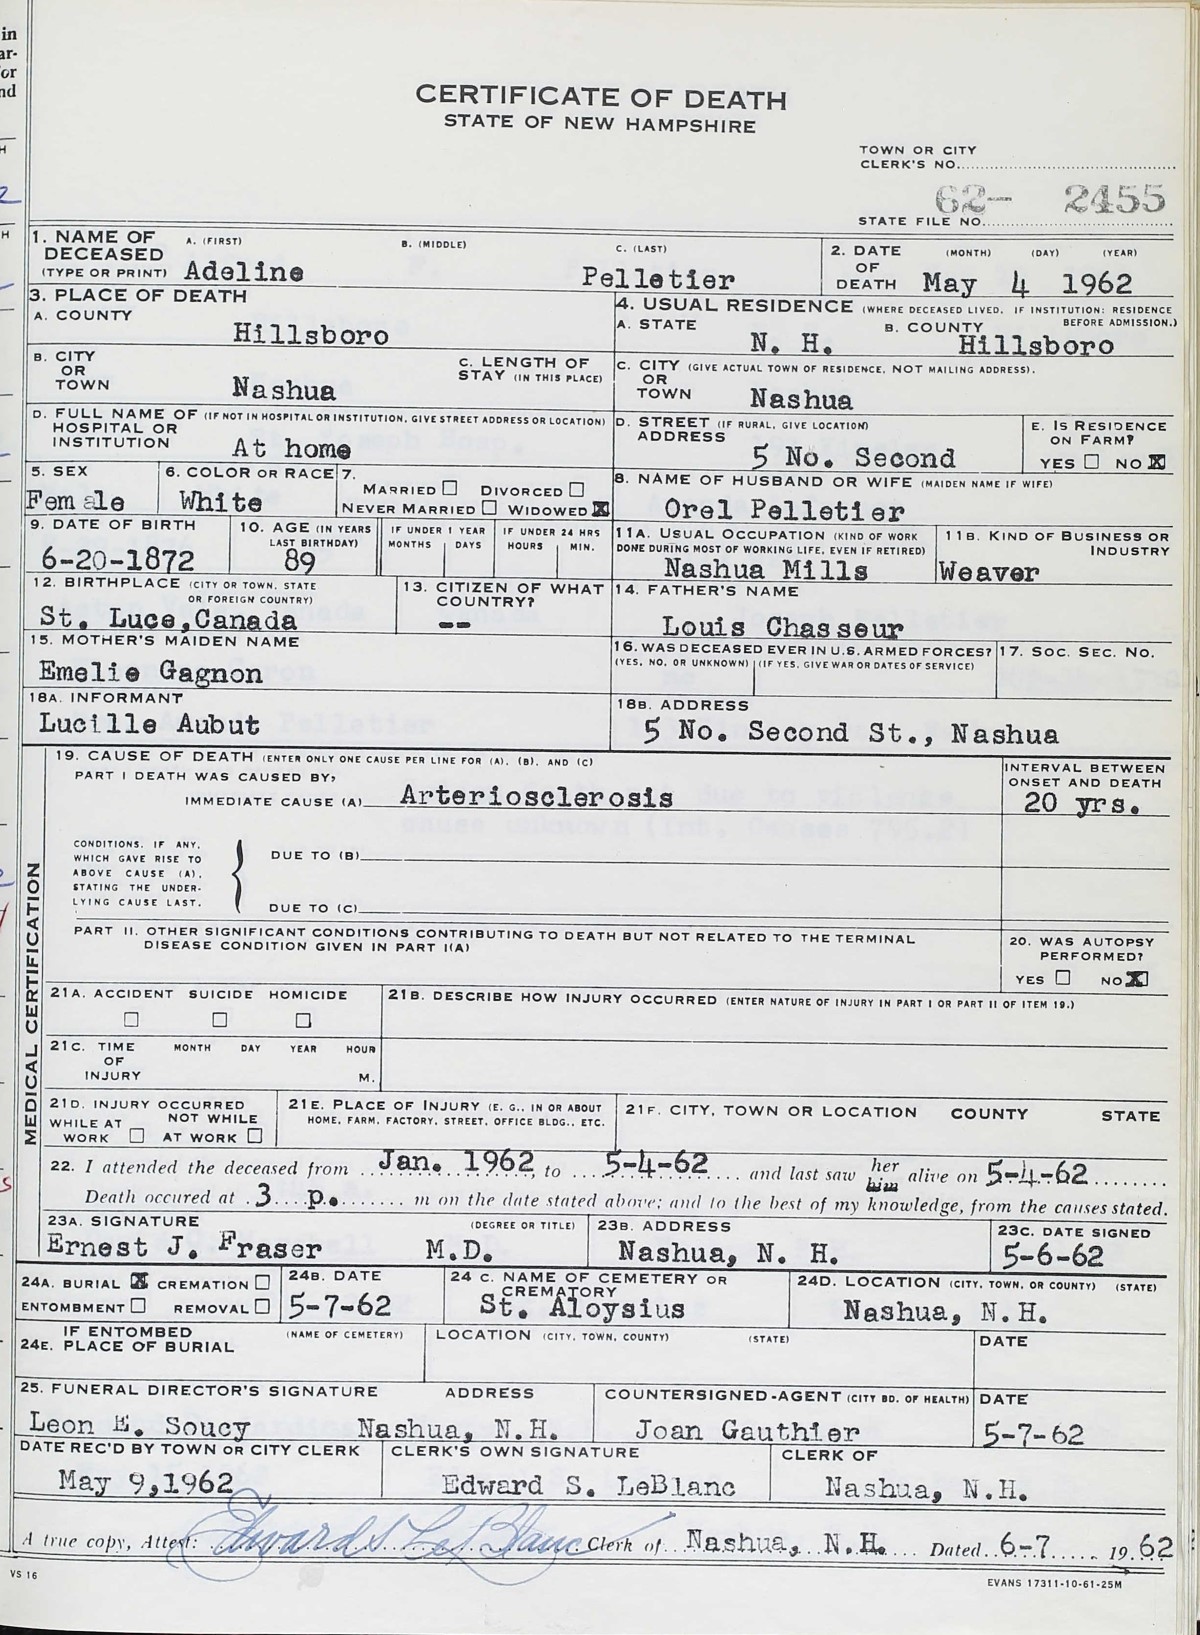 in
ar-
for
nd
CERTIFICATE OF DEATH
STATE OF NEW HAMPSHIRE
TOWN OR CITY
CLERK'S NO.
62- 2455
STATE FILE NO.
1. NAME OF DECEASED (TYPE OR PRINT) A. (FIRST) B. (MIDDLE) C. (LAST)
Adeline Pelletier
2. DATE OF DEATH (MONTH) (DAY) (YEAR)
May 4 1962
3. PLACE OF DEATH
A. COUNTY
Hillsboro
4. USUAL RESIDENCE (WHERE DECEASED LIVED. IF INSTITUTION: RESIDENCE BEFORE ADMISSION.)
A. STATE B. COUNTY
N. H. Hillsboro
B. CITY OR TOWN
Nashua
C. LENGTH OF STAY (IN THIS PLACE)
C. CITY (GIVE ACTUAL TOWN OF RESIDENCE, NOT MAILING ADDRESS).
OR TOWN
Nashua
D. FULL NAME OF (IF NOT IN HOSPITAL OR INSTITUTION, GIVE STREET ADDRESS OR LOCATION)
HOSPITAL OR INSTITUTION
At home
D. STREET (IF RURAL, GIVE LOCATION)
ADDRESS
5 No. Second
E. IS RESIDENCE ON FARM?
YES NO X
5. SEX
Female
6. COLOR OR RACE
White
7. MARRIED DIVORCED
NEVER MARRIED WIDOWED X
8. NAME OF HUSBAND OR WIFE (MAIDEN NAME IF WIFE)
Orel Pelletier
9. DATE OF BIRTH
6-20-1872
10. AGE (IN YEARS LAST BIRTHDAY)
89
IF UNDER 1 YEAR
MONTHS DAYS
IF UNDER 24 HRS
HOURS MIN.
11A. USUAL OCCUPATION (KIND OF WORK DONE DURING MOST OF WORKING LIFE, EVEN IF RETIRED)
Nashua Mills
11B. KIND OF BUSINESS OR INDUSTRY
Weaver
12. BIRTHPLACE (CITY OR TOWN, STATE OR FOREIGN COUNTRY)
St. Luce,Canada
13. CITIZEN OF WHAT COUNTRY?
--
14. FATHER'S NAME
Louis Chasseur
15. MOTHER'S MAIDEN NAME
Emelie Gagnon
16. WAS DECEASED EVER IN U.S. ARMED FORCES?
(YES, NO, OR UNKNOWN) (IF YES, GIVE WAR OR DATES OF SERVICE)
17. SOC. SEC. NO.
18A. INFORMANT
Lucille Aubut
18B. ADDRESS
5 No. Second St., Nashua
MEDICAL CERTIFICATION
19. CAUSE OF DEATH (ENTER ONLY ONE CAUSE PER LINE FOR (A), (B), AND (C)
PART I DEATH WAS CAUSED BY:
IMMEDIATE CAUSE (A) Arteriosclerosis
INTERVAL BETWEEN ONSET AND DEATH
20 yrs.
CONDITIONS, IF ANY,
WHICH GAVE RISE TO
ABOVE CAUSE (A),
STATING THE UNDER-
LYING CAUSE LAST.
DUE TO (B)
DUE TO (C)
PART II. OTHER SIGNIFICANT CONDITIONS CONTRIBUTING TO DEATH BUT NOT RELATED TO THE TERMINAL
DISEASE CONDITION GIVEN IN PART I(A)
20. WAS AUTOPSY PERFORMED?
YES NO X
21A. ACCIDENT SUICIDE HOMICIDE
21B. DESCRIBE HOW INJURY OCCURRED (ENTER NATURE OF INJURY IN PART I OR PART II OF ITEM 19.)
21C. TIME OF INJURY MONTH DAY YEAR HOUR
M.
21D. INJURY OCCURRED
WHILE AT WORK NOT WHILE AT WORK
21E. PLACE OF INJURY (E. G., IN OR ABOUT HOME, FARM, FACTORY, STREET, OFFICE BLDG., ETC.
21F. CITY, TOWN OR LOCATION COUNTY STATE
22. I attended the deceased from Jan. 1962, to 5-4-62 and last saw her him alive on 5-4-62
Death occured at 3 p. m on the date stated above; and to the best of my knowledge, from the causes stated.
23A. SIGNATURE (DEGREE OR TITLE)
Ernest J. Fraser M.D.
23B. ADDRESS
Nashua, N. H.
23C. DATE SIGNED
5-6-62
24A. BURIAL X CREMATION
ENTOMBMENT REMOVAL
24B. DATE
5-7-62
24 C. NAME OF CEMETERY OR CREMATORY
St. Aloysius
24D. LOCATION (CITY, TOWN, OR COUNTY) (STATE)
Nashua, N. H.
IF ENTOMBED (NAME OF CEMETERY) LOCATION (CITY, TOWN, COUNTY) (STATE) DATE
24E. PLACE OF BURIAL
25. FUNERAL DIRECTOR'S SIGNATURE ADDRESS
Leon E. Soucy Nashua, N.H.
COUNTERSIGNED-AGENT (CITY BD. OF HEALTH)
Joan Gauthier
DATE
5-7-62
DATE REC'D BY TOWN OR CITY CLERK
May 9,1962
CLERK'S OWN SIGNATURE
Edward S. LeBlanc
CLERK OF
Nashua, N.H.
A true copy, Attest: Edward S LeBlanc Clerk of Nashua, N.H. Dated 6-7 19 62
VS 16
EVANS 17311-10-61-25M